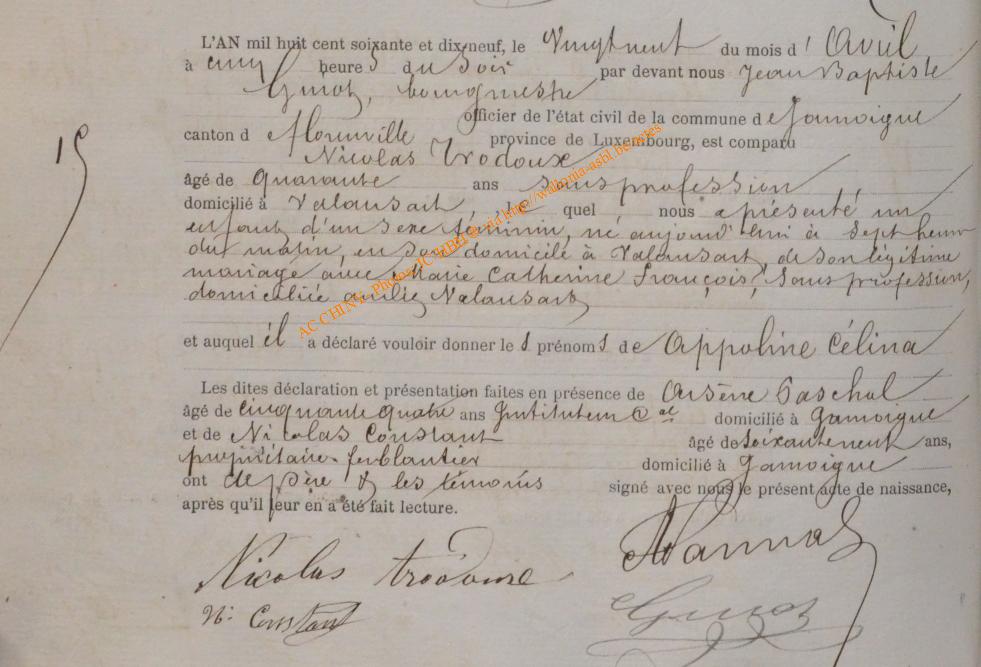 L'AN mil huit cent soixante et dix-neuf, le Vingt neuf du mois d'Avril
à cinq heures du soir par devant nous Jean Baptiste
bourgmestre
officier de l'état civil de la commune de Jamoigne
canton de Florenville province de Luxembourg, est comparu
Nicolas Trodoux
âgé de quarante ans sans profession
domicilié à Valansart lequel nous a présenté un
enfant d'un sexe féminin, né aujourd'hui à sept heures
du matin, en son domicile à Valansart, de son légitime
mariage avec Marie Catherine François, sans profession,
domiciliée audit Valansart
15
et auquel il a déclaré vouloir donner les prénoms de Appoline Célina
Les dites déclaration et présentation faites en présence de Arsène Paschal
âgé de cinquante quatre ans Instituteur Cal domicilié à Jamoigne
et de Nicolas Constant âgé de soixante neuf ans,
propriétaire-ferblantier domicilié à Jamoigne
ont le père & les témoins signé avec nous le présent acte de naissance,
après qu'il leur en a été fait lecture.
Nicolas trodoux
N. Constant
AC CHINY - Photos JC MBH © via http://wallonia-asbl.be/actes